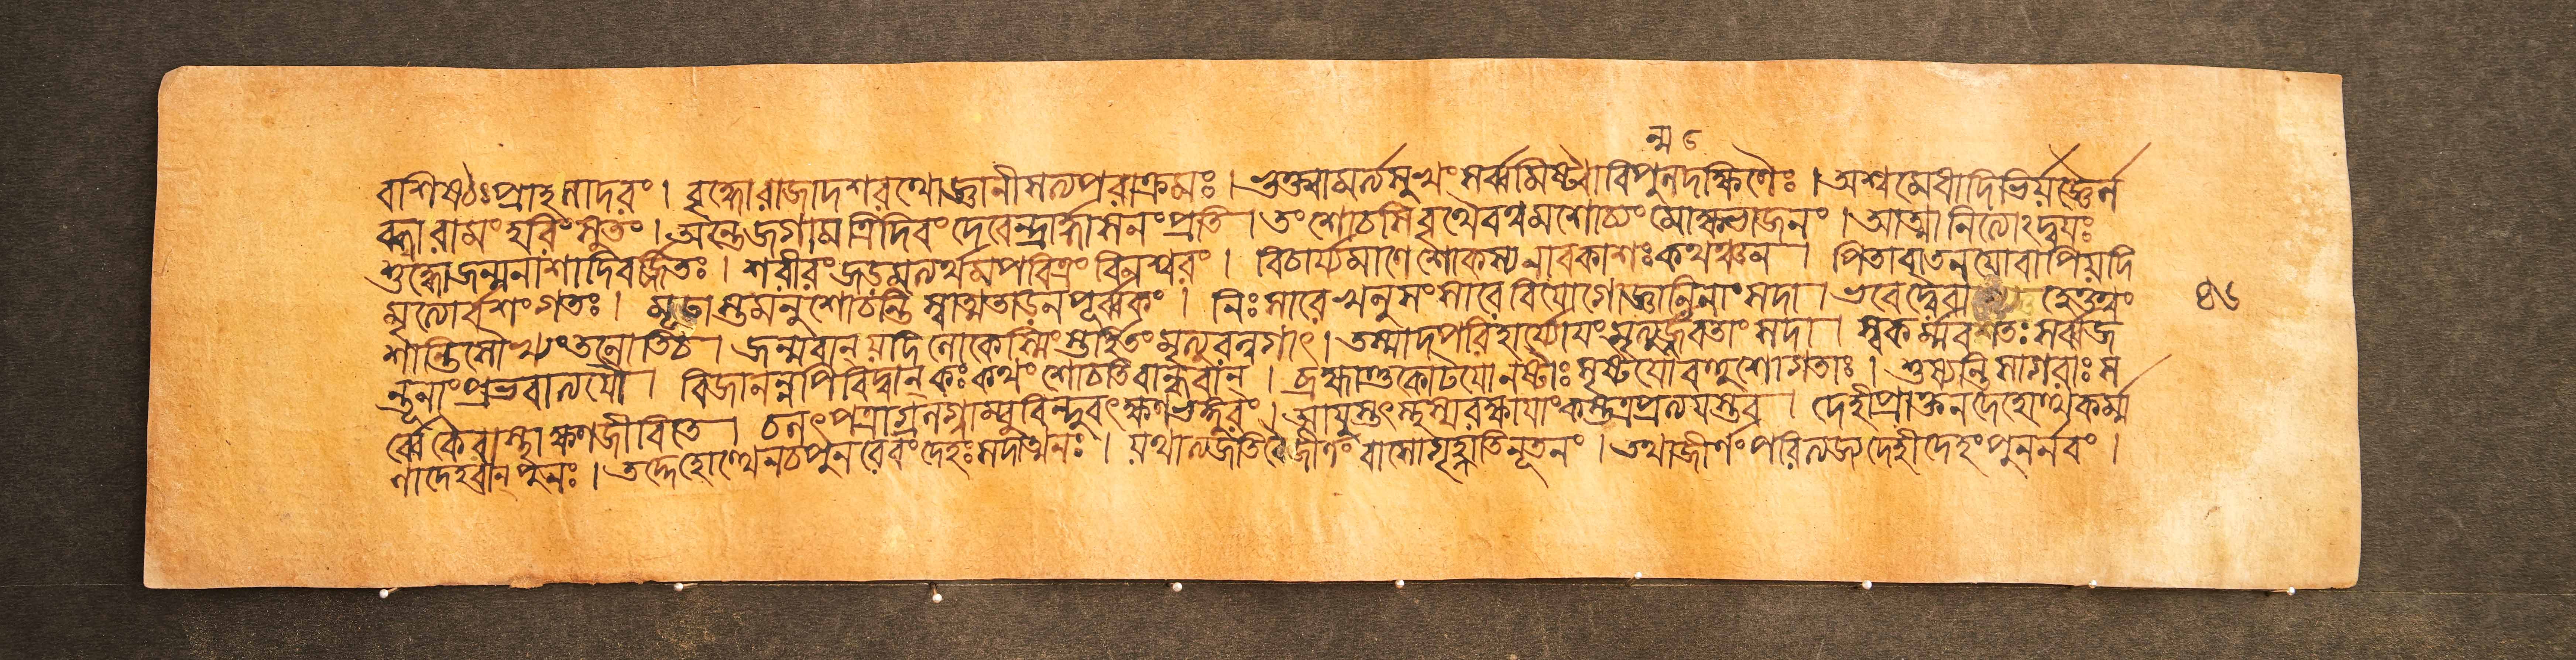 ন্ম ৫
বাশিষ্ঠঃ প্রাহ সাদরং । বৃদ্ধো রাজা দশরথো জ্ঞানী সত্যপরাক্রমঃ । ভুক্ত্বা মর্ত্যসুখং সর্ব্বমিষ্ট্বা বিপুলদক্ষিণৈঃ । অশ্বমেধাদিভির্য়জ্ঞৈর্ল
ব্ধ্বা রামং হরিং সুতং । অন্তে জগাম ত্রিদিবং দেবেন্দ্রার্দ্ধাসনং প্রতি । তং শোচসি বৃথৈব ত্বমশোচ্যং মোক্ষভাজনং । আত্মা নিত্যোঽব্যয়ঃ
শুদ্ধো জন্মনাশাদিবর্জ্জিতঃ । শরীরং জড়মত্যর্থমপবিত্রং বিনশ্বরং । বিচার্য্যমাণে শোকস্য নাবকাশঃ কথঞ্চন । পিতা বা তনয়ো বাপি য়দি
মৃত্যোর্বশং গতঃ । মূঢাস্তমনুশোচন্তি স্বাত্মতাড়নপূর্ব্বকং । নিঃসারে খলু সংসারে বিয়োগো জ্ঞানিনাং সদা । ভবেদ্বৈরা হেতুঃ স
শান্তিসৌখ্যং তনোতি চ । জন্মবান্ য়দি লোকেস্মিংস্তর্হি তং মৃত্যুরন্বগাৎ । তস্মাদপরিহার্য্যোয়ং মৃত্যুর্জন্মবতাং সদা । স্বকর্ম্মবশতঃ সর্বজ
ন্তূনাং প্রভবাপ্যয়ৌ । বিজানন্নপি বিদ্বান্ কঃ কথং শোচতি বান্ধবান্ । ব্রহ্মাণ্ডকোটয়ো নষ্টাঃ সৃষ্টয়ো বহুশো গতাঃ । শুষ্যন্তি সাগরাঃ স
র্ব্বে কৈবাস্থা ক্ষণজীবিতে । চলৎপত্রাগ্রলগ্নাম্বুবিন্দুবৎ ক্ষণভঙ্গুরং । দেহী প্রাক্তনদেহোত্থকর্ম্ম
ণা দেহবান্ পুনঃ । তদ্দেহোত্থেন চ পুনরেবং দেহঃ সদাত্মনঃ । য়থা ত্যজতি বৈ জীর্ণং বাসো গৃহ্ণাতি নূতনং । তথা জীর্ণং পরিত্যজ্য দেহী দেহং পুনর্নবং ।
৪৬